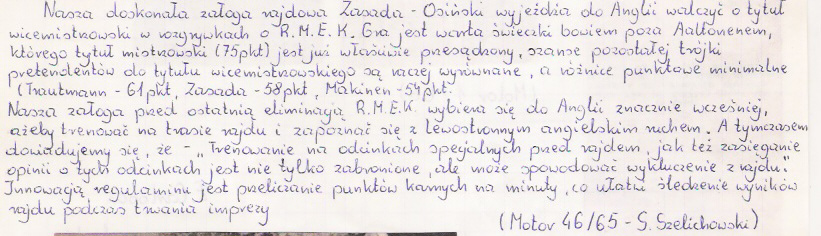 Nasza doskonała załoga rajdowa Zasada - Osiński wyjeżdża do Anglii walczyć o tytuł
wicemistrzowski w rozgrywkach o R.M.E.K. Gra jest warta świeczki bowiem poza Aaltonenem,
którego tytuł mistrzowski (75pkt) jest już właściwie przesądzony, szanse pozostałej trójki
pretendentów do tytułu wicemistrzowskiego są raczej wyrównane, a różnice punktowe minimalne
(Trautmann - 61pkt, Zasada - 58pkt, Mäkinen - 54pkt.
Nasza załoga przed ostatnią eliminacją R.M.E.K. wybiera się do Anglii znacznie wcześniej,
ażeby trenować na trasie rajdu i zapoznać się z lewostronnym angielskim ruchem. A tymczasem
dowiadujemy się, że - „Trenowanie na odcinkach specjalnych przed rajdem, jak też zasięganie
opinii o tych odcinkach jest nie tylko zabronione, ale może spowodować wykluczenie z rajdu."
Innowacją regulaminu jest przeliczanie punktów karnych na minuty, co ułatwi śledzenie wyników
rajdu podczas trwania imprezy
(Motor 46/65 - S. Szelichowski)